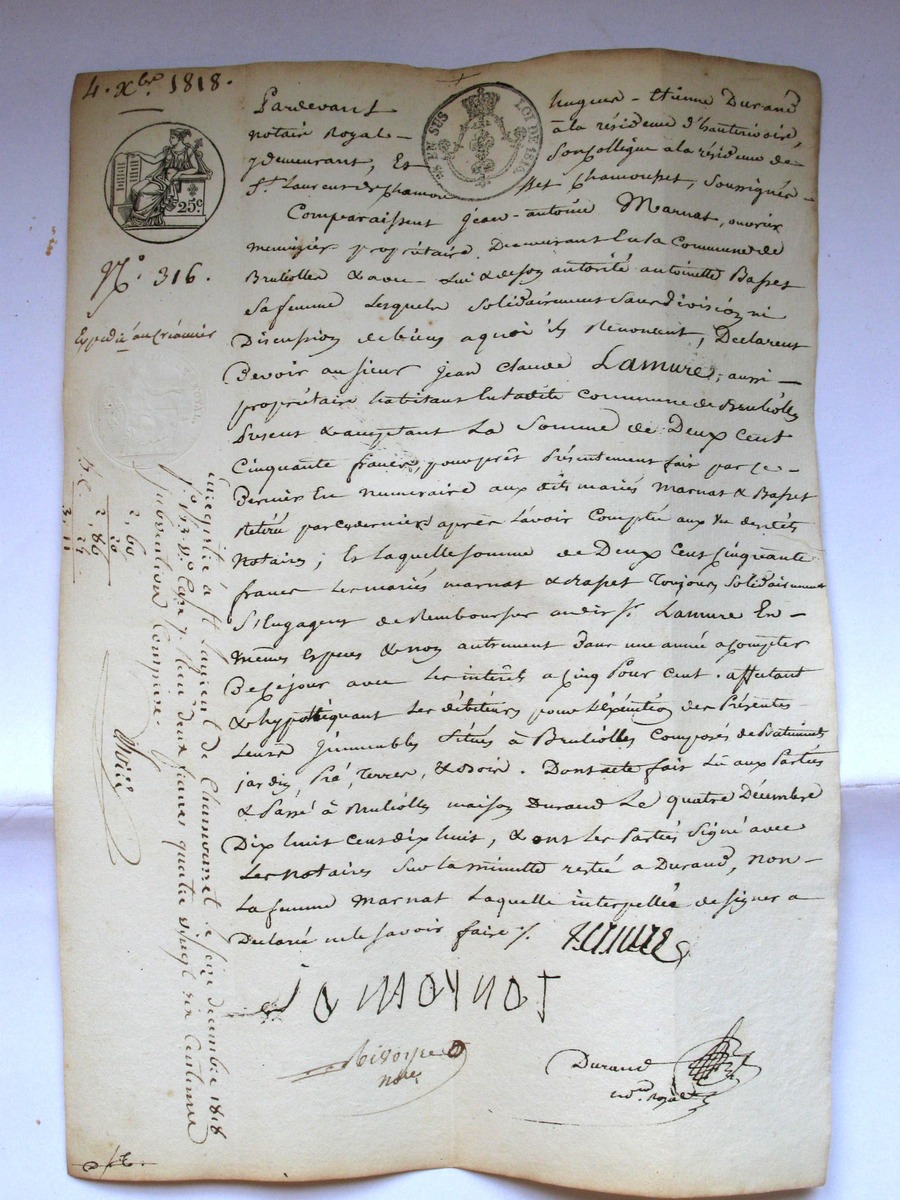 4. Xbre 1818.
25c
EN SUS
LOI DE 1816
N° 316.
Expédié au Créancier
Pardevant hugues-Etienne Durand
notaire Royal à la résidence d'hauterivoire,
y demeurant, Et Son Collègue à la résidence de
St. Laurent de Chamousset, soussignés
Comparaissent Jean-antoine Marnat, ouvrier
menuizier propriétaire Demeurant En la Commune de
Brulliolles & avec Lui & de son autorité antoinette Basset
sa femme Lesquels Solidairement Sans division ni
Discussion de biens a quoi ils Renoncent, Declarent
Devoir au sieur Jean Claude Lamure, aussi
propriétaire habitant En ladite Commune de Brulliolles
présent & acceptant La Somme de Deux Cent
Cinquante francs, pour prêt Présentement fait par ce
Dernier En numéraire aux dits mariés Marnat & Basset
Retiré par ces derniers après L'avoir Comptée aux Vu desdits
Notaires; Et Laquelle somme de Deux Cent Cinquante
francs Les mariés marnat & Basset Toujours Solidairement
S'Engagent de Rembourser audit Sr. Lamure En
mêmes Espèces & non autrement dans une année a compter
De ce jour avec Les intérêts a Cinq Pour Cent. affectant
& hypothéquant Les débiteurs pour L'exécution des Présentes
Leurs Immeubles Situés à Brulliolles Composés de Batiments
jardin, Pré, Terres, & Bois. Dont acte fait Lu aux Parties
& Passé à Brulliolles maison Durand Le quatre Décembre
Dix huit Cent dix huit, & ont Les Parties Signé avec
Les Notaires Sur la minutte restée a Durand, non
La femme Marnat Laquelle interpellée de signer a
Declaré ne le Savoir faire
Lamure
Durand
not. royal
nore
Enregistré à St. Laurent de Chamousset le seize décembre 1818
Reçu deux francs quatre vingt six Centimes
Subvention Comprise.
2,60
26
2,86
25
3,11